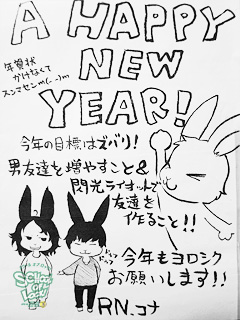 A HAPPY
NEW
YEAR!
年賀状
かけなくて
スンマセンm(_ _)m
今年の目標はズバリ!
男友達を増やすこと&
閃光ライオットで
友達を
作ること!!
今年もヨロシク
お願いします!!
RN.コナ
SCHOOL
OF
LOCK!